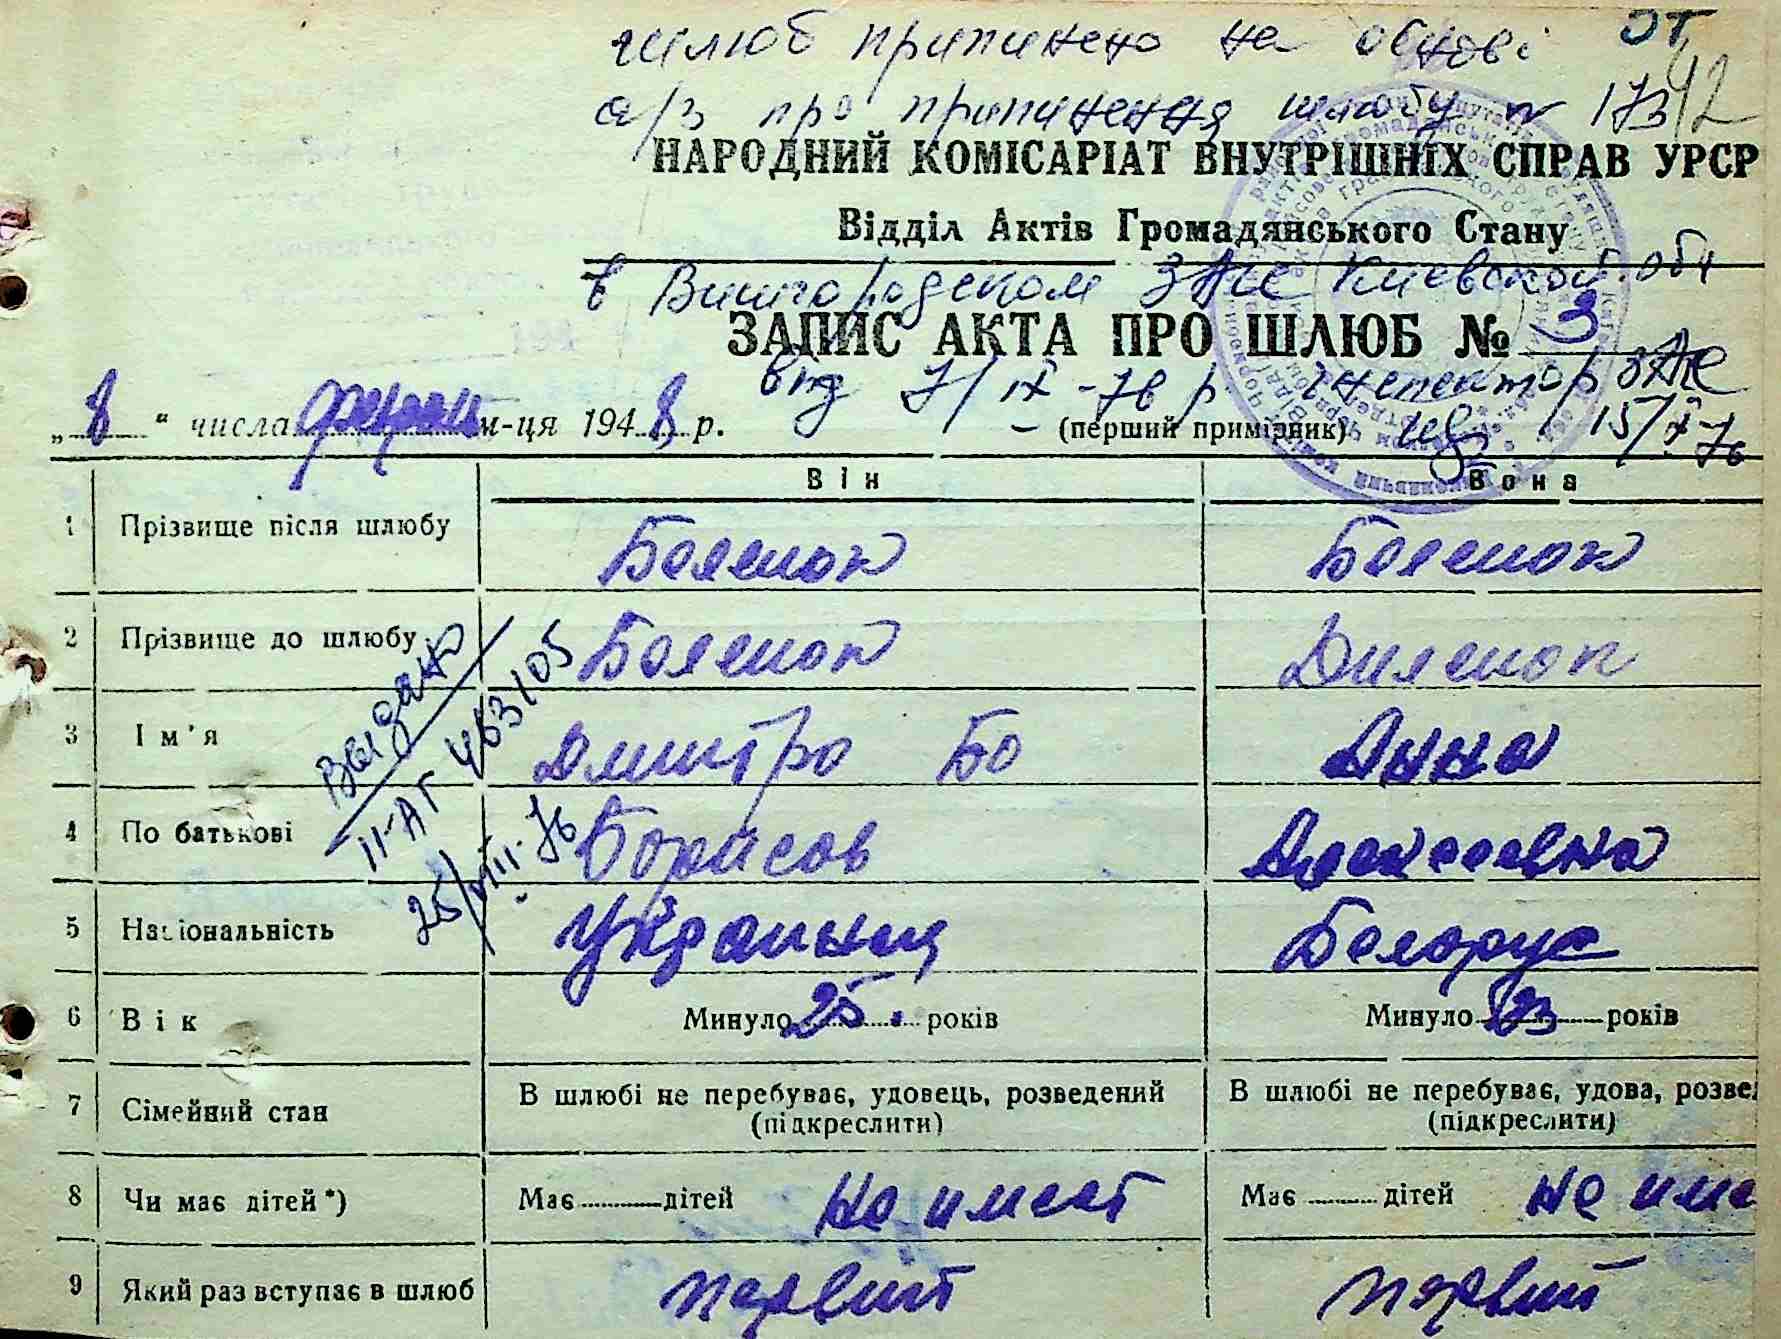 шлюб припинено на основі
а/з про припинення шлюбу № 173
42
НАРОДНИЙ КОМІСАРІАТ ВНУТРІШНІХ СПРАВ УРСР
Відділ Актів Громадянського Стану
в Вишгородском ЗАГС Киевской обл
ЗАПИС АКТА ПРО ШЛЮБ № 3
від 7/IX-76 р инспектор ЗАГС
„8“ числа м-ця 1948 р. (перший примірник) 15/X-76
Він Вона
1 Прізвище після шлюбу
2 Прізвище до шлюбу
3 Ім'я Дмитро Бо Анна
4 По батькові Борисов Алексеевна
5 Національність Украинец Белорус
Выдано
II-АГ 463105
25/VIII-76
6 Вік Минуло 25 років Минуло 23 років
7 Сімейний стан В шлюбі не перебуває, удовець, розведений (підкреслити) В шлюбі не перебуває, удова, розве (підкреслити)
8 Чи має дітей *) Має дітей не имеет Має дітей не име
9 Який раз вступає в шлюб первий первий